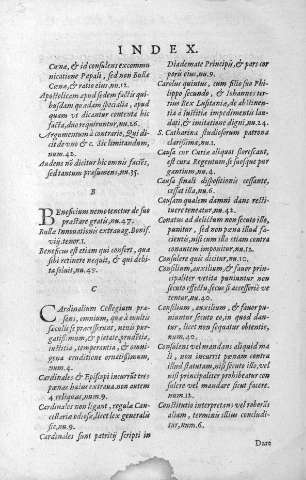 INDEX.
Cœnæ, & id consulens excommu
nicatione Papali, sed non Bullæ
Cœnæ, & ratio eius, nu. 12.
Apostolicam apud sedem factis qui-
busdam quædam specialia, apud
quam vt dicantur contenta hic
facta, duo requiruntur, nu. 26.
Argumentum à contrario, Qui di-
cit de vno & c. sic limitandum,
num. 42.
Audens nõ dicitur hic omnis faciẽs,
sed tantum præsumens, nu. 35.
B
Beneficium nemo tenetur de suo
præstare gratis, nu. 47.
Bullæ innouationis extrauag. Bonif.
viij. tenor. 1.
Beneficus est etiam qui confert, qua
sibi retinere nequit, & qui debi-
ta soluit, nu. 47.
C
Cardinalium Collegium præ-
sens, omnium, quæ à multis
sæculis præcesserunt, vitiis purga-
tissimum, & pietate, eruditio,
iustitia, temperantia, & omni-
gena conditione ornatissimum,
num. 4.
Cardinales & Episcopi incurrũt tres
pœnas huius extrauag. non autem
4 reliquas, num. 9.
Cardinales non ligant, regulæ Can-
cellariæ odiosæ, licet lex generalis
sic, nu. 9.
Cardinales sunt patritij scripti in
Diademate Principis, & pars cor
poris eius, nu. 9.
Carolus quintus, cum filio suo Phi-
lippo secundo, & Iohannes ter-
tius Rex Lusitaniæ, de abstinen-
tia à iustitia impedimentis lau-
dati, & imitatione digni, nu. 24.
S. Catharina studiosorum patrona
clarissima, nu. 1.
Causa cur Curiæ aliquæ floreseant,
est cura Regentum, se suosque pur
gantium, nu. 4.
Causa finali dispositionis cessante,
cessat illa, nu. 6.
Causam qualem damni dans resti-
tuere teneatur, nu. 42.
Conatus ad delictum non secuto illo,
punitur, sed non pœna illud fa-
cientis, nisi cum illo etiam contra
conantem imponitur, nu. 10.
Consulens quis dicitur, nu. 10.
Consilium, auxilium, & fauor prin-
cipaliter vetita puniuntur non
secuto effectu, secus si accessoriè ve
tentur, nu. 10.
Consilium, auxilium, & fauor pu-
niuntur secuto eo, in quod dan-
tur, licet non sequatur obtentio,
num. 40.
Consulens vel mandans aliquid ma
li, non incurrit pœnam contra
illud statutam, nisi secuto illo, vel
nisi principaliter prohibeatur con
sulere vel mandare sicut facere.
num. 12.
Constitutio interpretans vel roborãs
aliam, terminis illius concludi-
tur, num. 6.
Dare